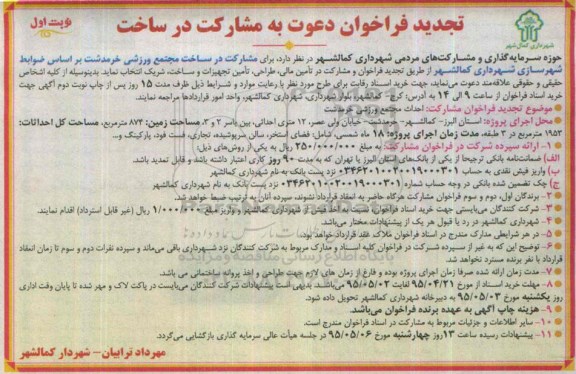 نوبت اول
تجدید فراخوان دعوت به مشارکت در ساخت
شهرداری کمال‌شهر
حوزه سرمایه‌گذاری و مشارکت‌های مردمی شهرداری کمالشهر در نظر دارد، برای مشارکت در ساخت مجتمع ورزشی خرمدشت بر اساس ضوابط
شهرسازی شهرداری کمالشهر از طریق تجدید فراخوان و مشارکت در تأمین مالی، طراحی، تأمین تجهیزات و ساخت، شریک انتخاب نماید. بدینوسیله از کلیه اشخاص
حقیقی و حقوقی علاقه‌مند دعوت می‌نماید، جهت خرید اسناد رقابت برای طرح مورد نظر با رعایت موارد و شرایط ذیل ظرف مدت ۱۵ روز پس از چاپ نوبت دوم آگهی جهت
خرید اسناد فراخوان از ساعت ۹ الی ۱۴ به آدرس: کرج- کمالشهر، بلوار شهرداری، شهرداری کمالشهر، واحد امور قراردادها مراجعه نمایند.
موضوع تجدید فراخوان مشارکت: احداث مجتمع ورزشی خرمدشت
محل اجرای پروژه: استان البرز- کمالشهر- خرمدشت- خیابان ولی عصر، ۱۲ متری احداثی، بین یاسر ۲ و ۳. مساحت زمین: ۸۷۴ مترمربع، مساحت کل احداثات:
۱۹۵۳ مترمربع در ۳ طبقه، مدت زمان اجرای پروژه: ۱۸ ماه شمسی، شامل: فضای استخر، سالن سرپوشیده، تجاری، فست فود، پارکینگ و...
۱- ارائه سپرده شرکت در فراخوان مشارکت: به مبلغ ۲۵۰/۰۰۰/۰۰۰ ریال به یکی از روش‌های ذیل:
الف) ضمانت‌نامه بانکی ترجیحا از یکی از بانک‌های استان البرز یا تهران که به مدت ۹۰ روز کاری اعتبار داشته باشد و قابل تمدید باشد.
ب) واریز فیش نقدی به حساب ۰۳۴۶۲۰۱۰۰۳۰۰۱۹۰۰۰۳۰۱ نزد پست بانک به نام شهرداری کمالشهر
ج) چک تضمین شده بانکی در وجه حساب شماره ۰۳۴۶۲۰۱۰۰۳۰۰۱۹۰۰۰۳۰۱ نزد پست بانک به نام شهرداری کمالشهر
۲- برندگان اول، دوم و سوم فراخوان مشارکت هرگاه حاضر به انعقاد قرارداد نشوند، سپرده آنان به ترتیب ضبط خواهد شد.
۳- شرکت کنندگان می‌بایستی جهت خرید اسناد فراخوان نسبت به اخذ فیش از شهرداری کمالشهر و واریز مبلغ ۱/۰۰۰/۰۰۰ ریال (غیر قابل استرداد) اقدام نمایند.
۴- شهرداری کمالشهر در رد یا قبول هر یک از پیشنهادات مختار می‌باشد.
۵- در هر شرایطی مدارک مندرج در اسناد فراخوان ملاک عقد قرارداد خواهد بود.
۶- توضیح این که به غیر از سپرده شرکت در فراخوان کلیه اسناد و مدارک مربوط به شرکت کنندگان نزد شهرداری باقی می‌ماند و سپرده نفرات دوم و سوم تا زمان انعقاد
قرارداد با نفر برنده مسترد نخواهد شد.
۷- مدت زمان ارائه شده صرفا زمان اجرای پروژه بوده و فارغ از زمان های لازم جهت طراحی و اخذ پروانه ساختمانی می باشد.
۸- مهلت خرید اسناد از مورخ ۹۵/۰۴/۲۱ لغایت ۹۵/۰۵/۰۲ می‌باشد. بدیهی است پیشنهادات شرکت کنندگان می‌بایست در پاکت لاک و مهر شده تا پایان وقت اداری
روز یکشنبه مورخ ۹۵/۰۵/۰۳ به دبیرخانه شهرداری کمالشهر تحویل داده شود.
۹- هزینه چاپ آگهی به عهده برنده فراخوان می‌باشد.
۱۰- سایر اطلاعات و جزئیات مربوط به مشارکت در اسناد فراخوان مندرج است.
۱۱- پیشنهادات رسیده ساعت ۱۳ روز چهارشنبه مورخ ۹۵/۰۵/۰۶ در جلسه هیأت عالی سرمایه گذاری بازگشایی می‌گردد.
مهرداد ترابیان- شهردار کمالشهر
پایگاه اطلاع رسانی مناقصه و مزایده